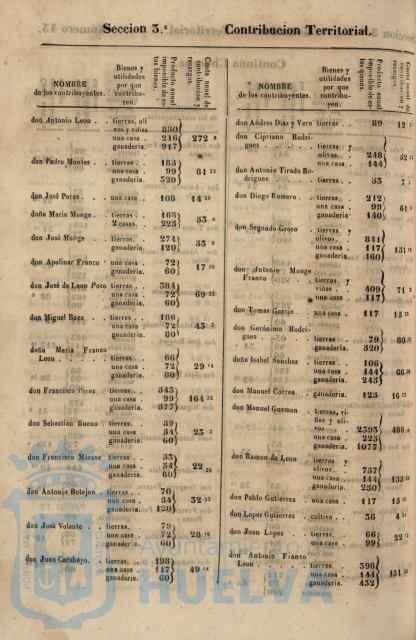 Seccion 3.ª Contribucion Territorial.
NOMBRE de los contribuyentes.
Bienes y utilidades por que contribuyen.
Producto anual imponible de estos bienes.
Cuota anual de contribucion y recargos.
don Antonio Leon . . tierras, oli
vos y viñas 830
una casa . 216 272 8
ganaderia. 917
don Pedro Montes . . tierras. . 183
una casa . 99 81 22
ganaderia. 320
don José Perez. . . una casa . 108 14 20
doña Maria Monge . . tierras. . 168
2 casas. . 225 53 6
don José Monge . . tierras. . 274
ganaderia. 120 53 6
don Apolinar Franco . una casa . 72
ganaderia. 60 17 10
don José de Leon Pozo tierras. . 384
una casa . 72 69 22
ganaderia. 60
don Miguel Baez . . tierras. . 186
una casa . 72 45 2
ganaderia. 80
doña Maria Franco
Leon . . . . tierras. . 66
una casa . 72 29 14
ganaderia. 80
don Francisco Perez tierras. . 545
una casa . 99 164 22
ganaderia. 577
don Sebastian Bueno . tierras. . 59
una casa . 54 23 2
ganaderia. 60
don Francisco Marave tierras. . 53
una casa . 54 22
ganaderia. 60
don Antonio Botejon . tierras. . 70
una casa . 54 32 32
ganaderia. 120
don José Volante . . tierras. . 79
una casa . 72 28 16
ganaderia. 60
don Juan Carabayo. . tierras. . 198
una casa . 117 49 14
ganaderia. 60
NOMBRE de los contribuyentes.
Bienes y utilidades por que contribuyen.
Producto anual imponible de estos bienes.
don Andres Diaz y Vera tierras . . 89 12
don Cipriano Rodri-
guez . . . . tierras y
olivos. . 248 52
una casa . 144
don Antonio Tirado Ro-
driguez . . . tierras . . 53 7
don Diego Romero. . tierras. . 212
una casa . 99 61
ganaderia. 140
don Segundo Groso . tierras y
olivos. . 841
una casa . 117 151
ganaderia. 160
don Antonio Monge
Franco . . . tierras y
viñas . . 409 71
una casa . 117
don Tomas Garcia. . una casa . 117 15
don Gerónimo Rodri-
guez. . . . tierras. . 79 80
ganaderia. 520
doña Isabel Sanchez . tierras. . 106
una casa . 144 66
ganaderia. 245
don Manuel Corres. . ganaderia. 125 16
don Manuel Guzman . tierras, vi-
ñas y oli-
vos. . . 2395 488
una casa . 225
ganaderia. 1077
don Ramon de Leon . tierras y
olivos. . 757
una casa . 144 153
ganaderia. 250
don Pablo Gutierrez . una casa . 117 15
don Lopez Gutierrez . cultivo . . 36 4
don Juan Lopez . . tierras. . 66 22
una casa . 99
don Antonio Franco
Leon . . . . tierras. . 398
una casa . 144 131
ganaderia. 432
Ayuntamiento de
HUELVA